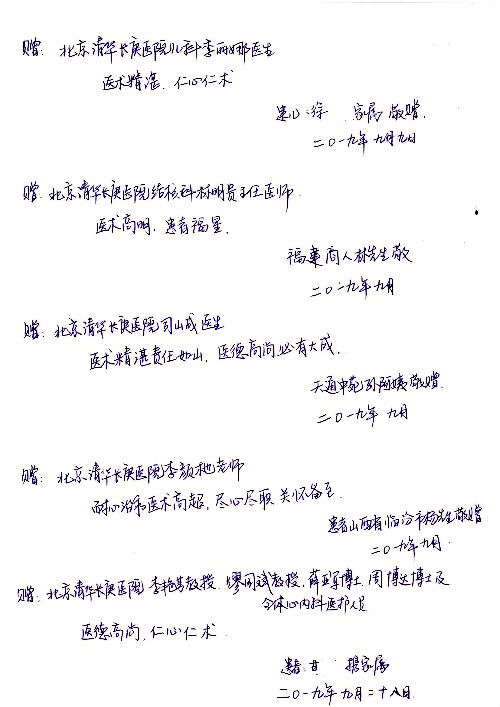 赠: 北京清华长庚医院儿科李丽娜医生
医术精湛、仁心仁术
患儿:徐 家属 敬赠.
二〇一九年 九月九日
赠: 北京清华长庚医院结核科林明贵主任医师.
医术高明, 患者福星.
福建商人林先生敬
二〇一九年 九月
赠: 北京清华长庚医院司山成医生
医术精湛责任如山, 医德高尚必有大成.
天通中苑孙阿姨敬赠.
二〇一九年 九月.
赠: 北京清华长庚医院李颜艳老师
耐心治和医术高超, 尽心尽职 关怀备至.
患者山西省临汾市杨先生敬赠
二〇一九年九月.
赠: 北京清华长庚医院 李艳芳教授. 缪国斌教授, 薛亚军博士, 周博达博士及
全体心内科医护人员
医德高尚, 仁心仁术.
患者: 甘 携家属
二〇一九年九月二十八日.